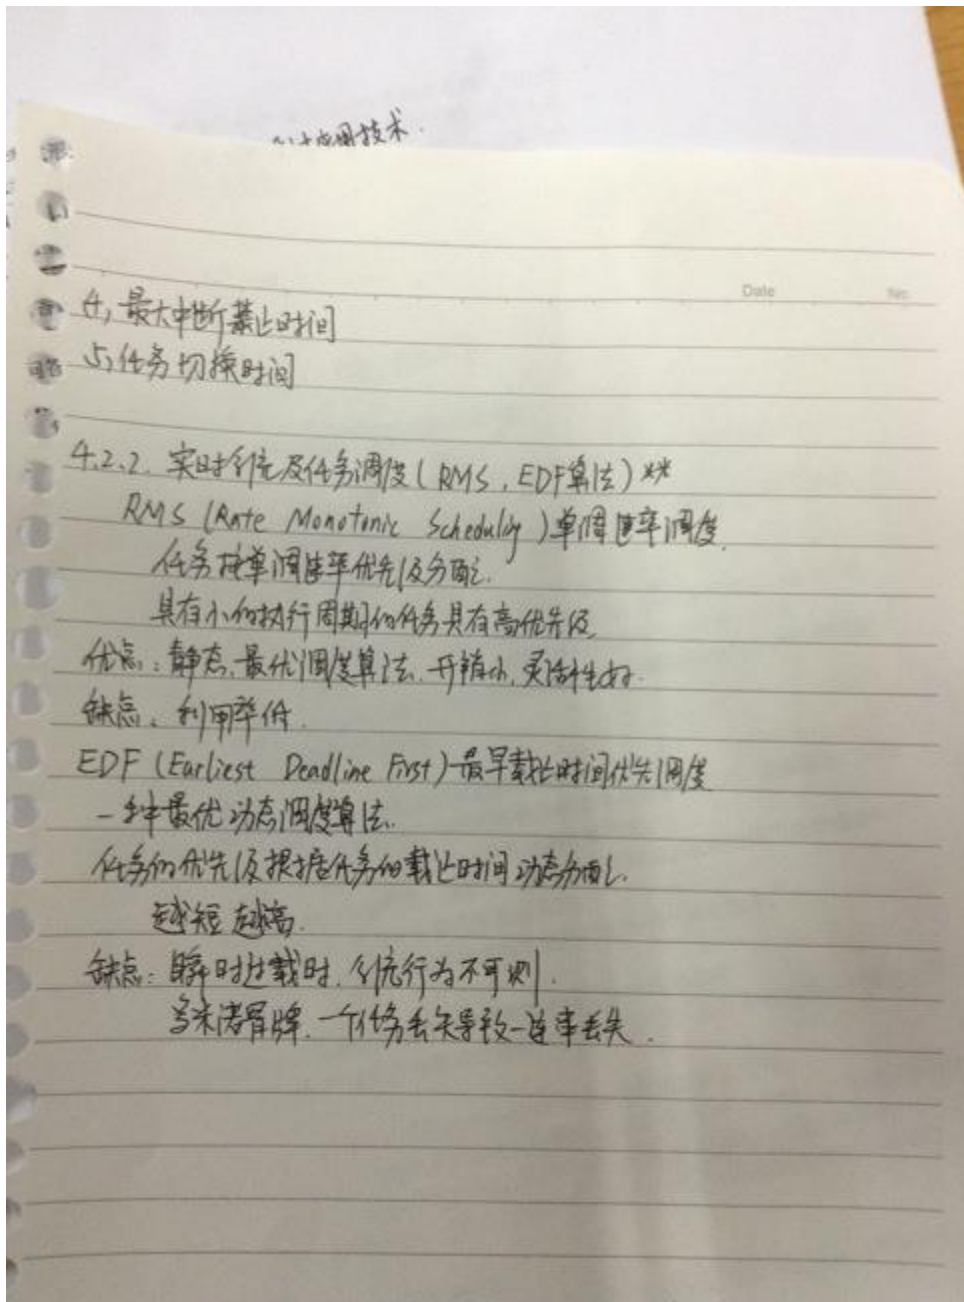 应用技术.
Date No.
4, 最大中断禁止时间
5, 任务切换时间
4.2.2. 实时系统及任务调度(RMS, EDF算法)**
RMS (Rate Monotonic Scheduling) 单调速率调度.
任务按单调速率优先级分配.
具有小的执行周期的任务具有高优先级
优点: 静态、最优调度算法. 开销小, 灵活性好.
缺点: 利用率低.
EDF (Earliest Deadline First) 最早截止时间优先调度
一种最优动态调度算法.
任务的优先级根据任务的截止时间动态分配.
越短越高.
缺点: 瞬时过载时, 系统行为不可测.
多米诺骨牌. 一个任务丢失导致一连串丢失.